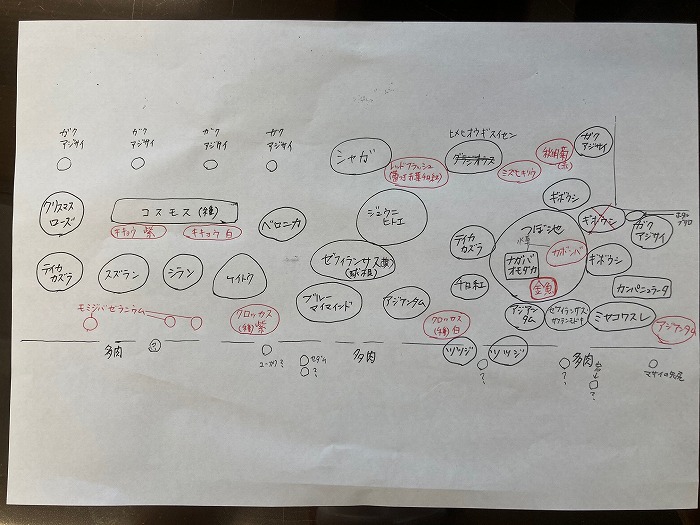 ガク
アジサイ
ガク
アジサイ
ガク
アジサイ
ガク
アジサイ
シャガ
レッドフラッシュ
ヒメヒオウギスイセン
グラジオラス
ミズヒキソウ
秋明菊
ガク
アジサイ
クリスマス
ローズ
コスモス (種)
キキョウ 紫
キキョウ 白
ベロニカ
ジュウニ
ヒトエ
テイカ
カズラ
つぼ池
水草
ナガバ
オモダカ
カボンバ
金魚
ギボウシ
ギボウシ
ガク
アジサイ
ギボウシ
カンパニュラータ
テイカ
カズラ
スズラン
シラン
ケイトウ
ゼフィランサス
(球根)
ブルー
マイマインド
アジアンタム
千日紅
アジアン
タム
ゼフィランサス
ミヤコワスレ
アジアンタム
モミジバゼラニウム
クロッカス
(種) 紫
クロッカス
(種) 白
ツツジ
ツツジ
多肉
?
多肉
多肉
?
?
?
?
マサイの矢尻